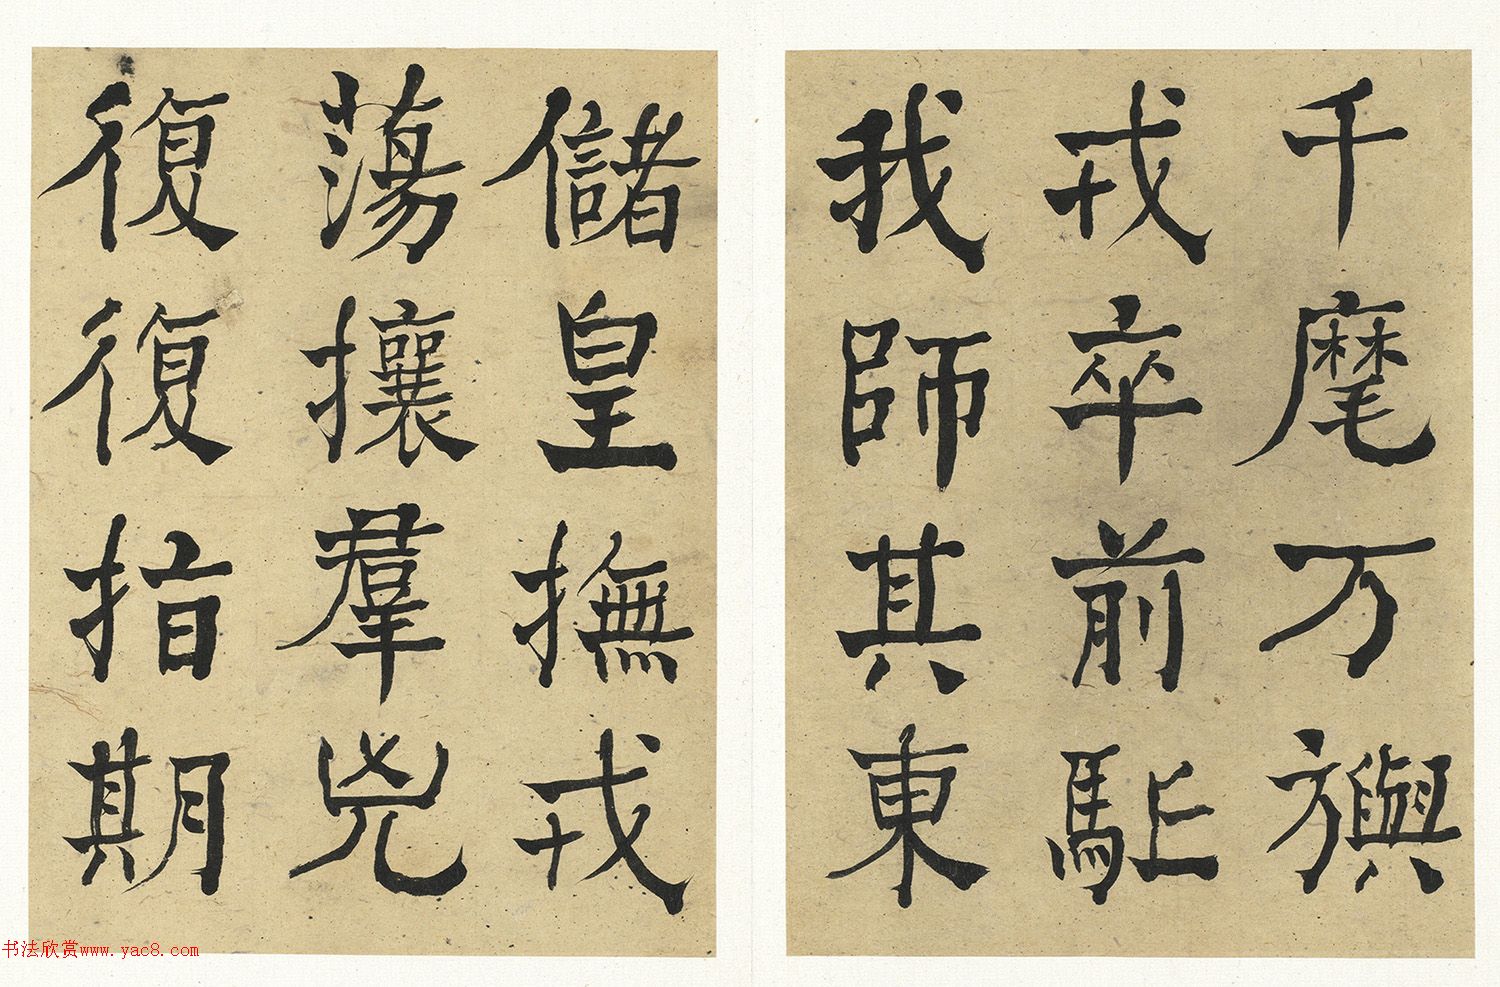 千麾万旟
戎卒前駈
我師其東
儲皇撫戎
蕩攘羣兇
復復指期
书法欣赏www.yac8.com